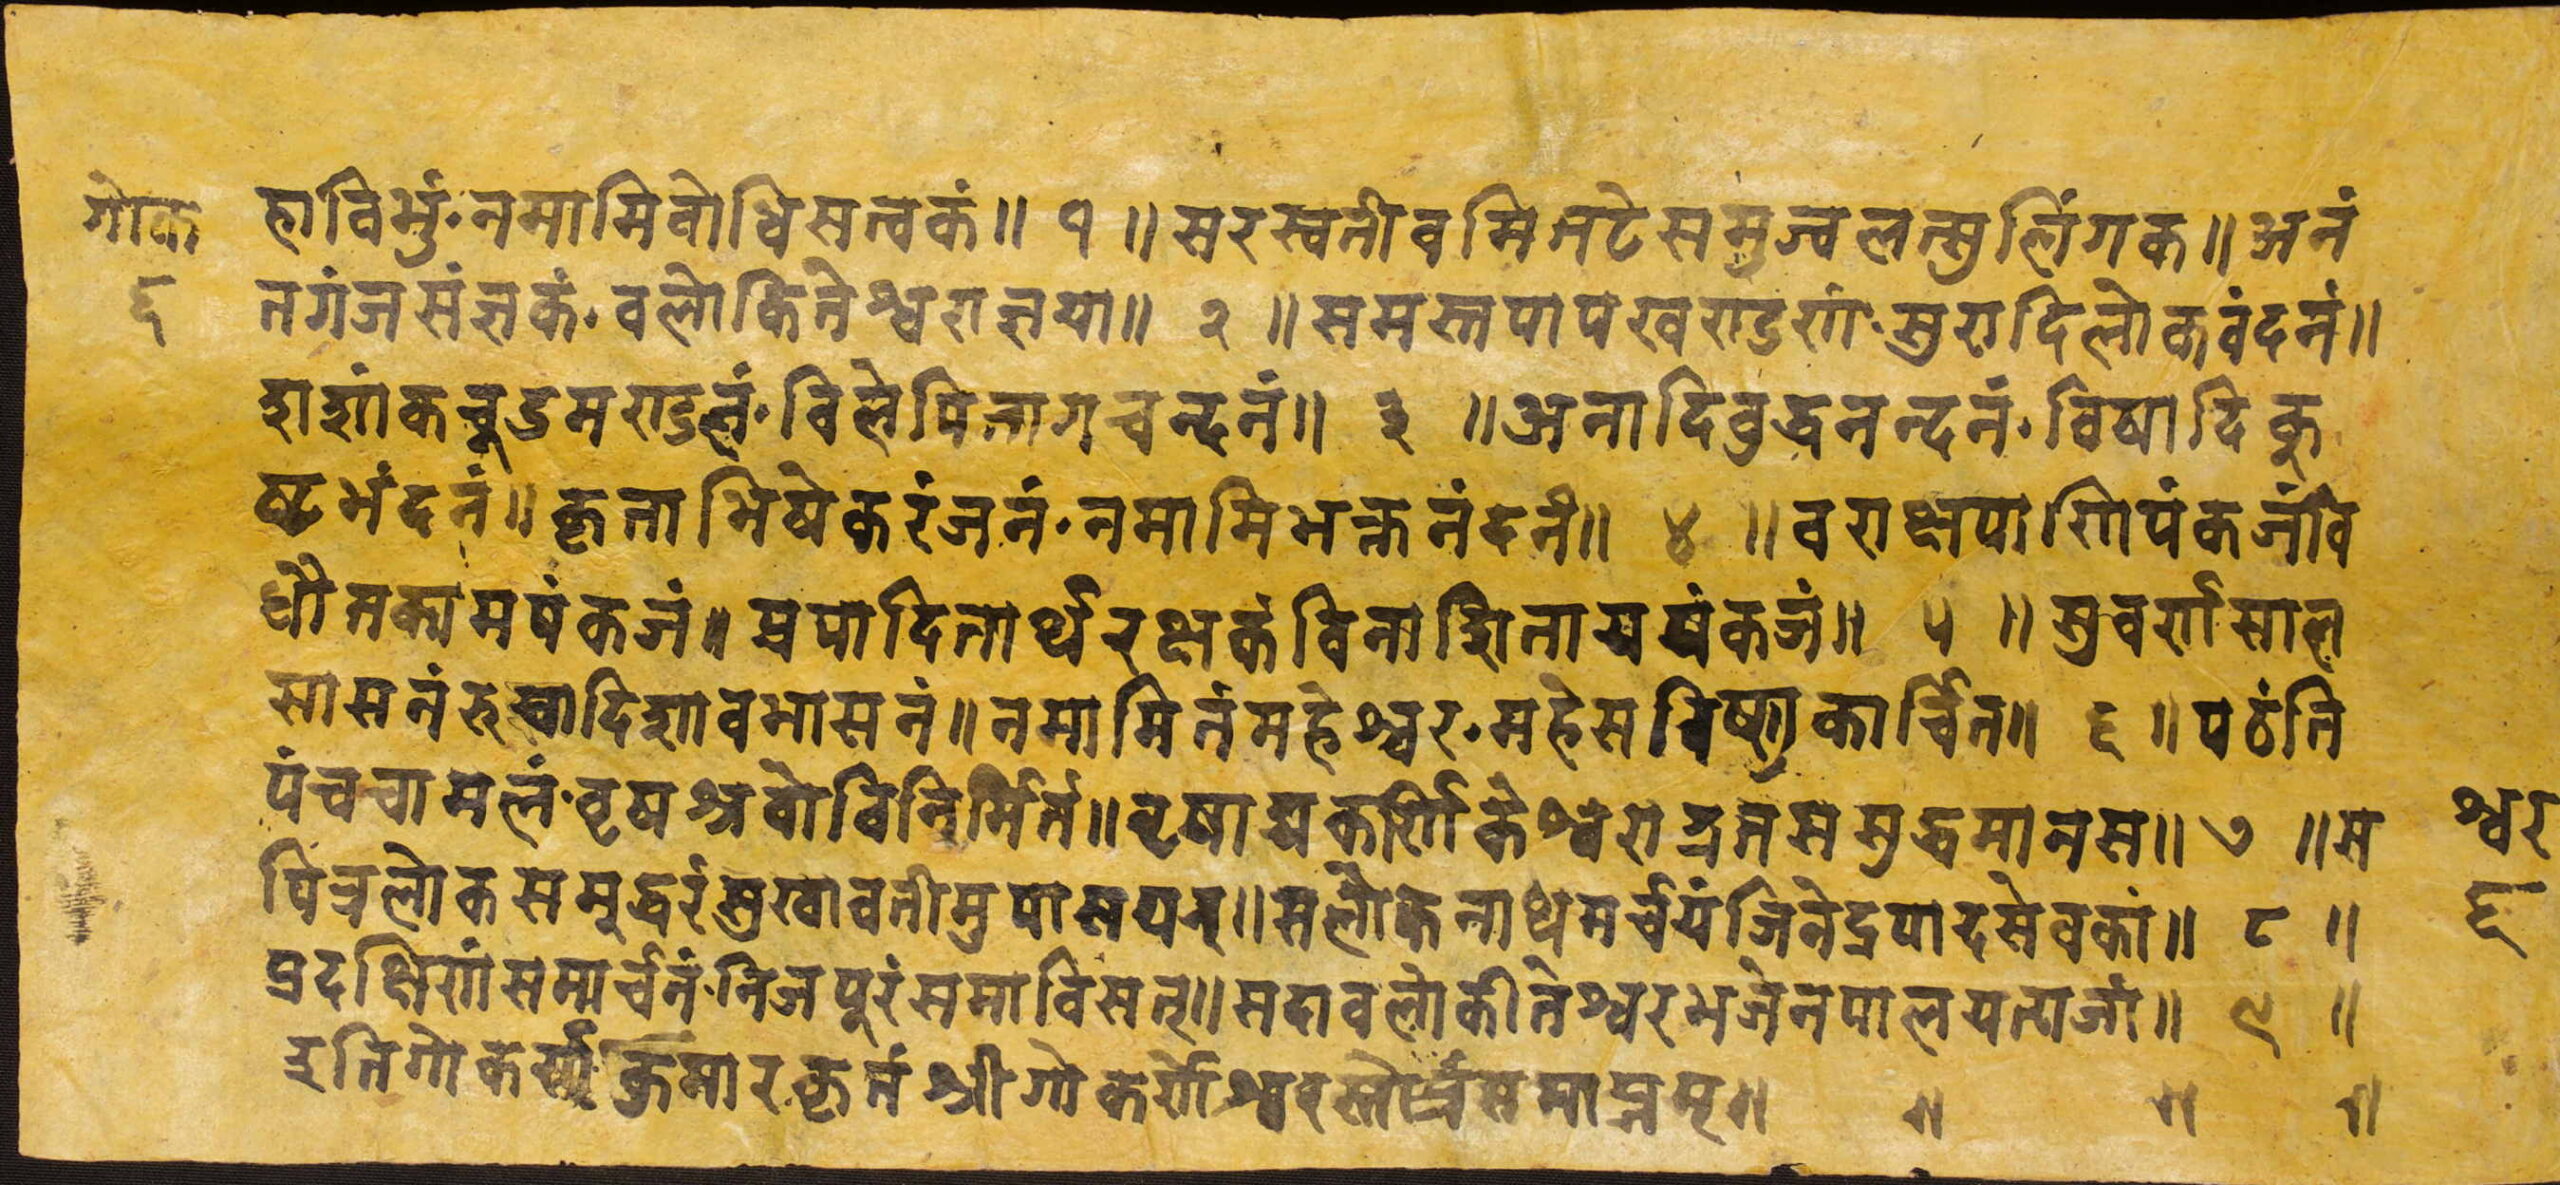 गोक
६
हाविभुं·नमामिवोधिसत्वकं॥ १ ॥सरस्वतीवमितटेसमुज्वलन्सुलिंगक॥अनं
तगंजसंज्ञकं·वलोकितेश्वराज्ञया॥ २ ॥समस्तपापखराडरां·सुरादिलोकवंदनं॥
शशांकचूडमराडनं·विलेपिनागचन्दनं॥ ३ ॥अनादिवुद्धनन्दनं·विद्यादिकु
ष्टभंदनं॥कृताभिषेकरंजनं·नमामिभक्तनंदनं॥ ४ ॥वराक्षपाणिपंकजंवि
धौतकामपंकजं॥प्रपादितार्थरक्षकंविनाशितायपंकजं॥ ५ ॥सुवर्णसाल
सासनंरुचादिशावभासनं॥नमामितंमहेश्वर·महेसविष्णुकार्चित॥ ६ ॥पठंति
पंचचामलं·वृषश्रवोविनिर्मितं॥वृषाद्यकर्णिकेश्वराद्रतसमुद्धमानस॥ ७ ॥स
पितृलोकसमुद्धरंसुखावतीमुपास्रयन्॥सलोकनाथमर्चयंजिनेद्रपादसेवकां॥ ८ ॥
प्रदक्षिणंसमार्चनं·निजपुरंसमाविसत्॥सदावलोकीतेश्वरभजेनपालयत्प्रजां॥ ९ ॥
इतिगोकर्ण·कुमारकृतंश्रीगोकर्णेश्वरस्तोत्रंसमाप्तम्॥ ॥ ॥ ॥
श्वर
६